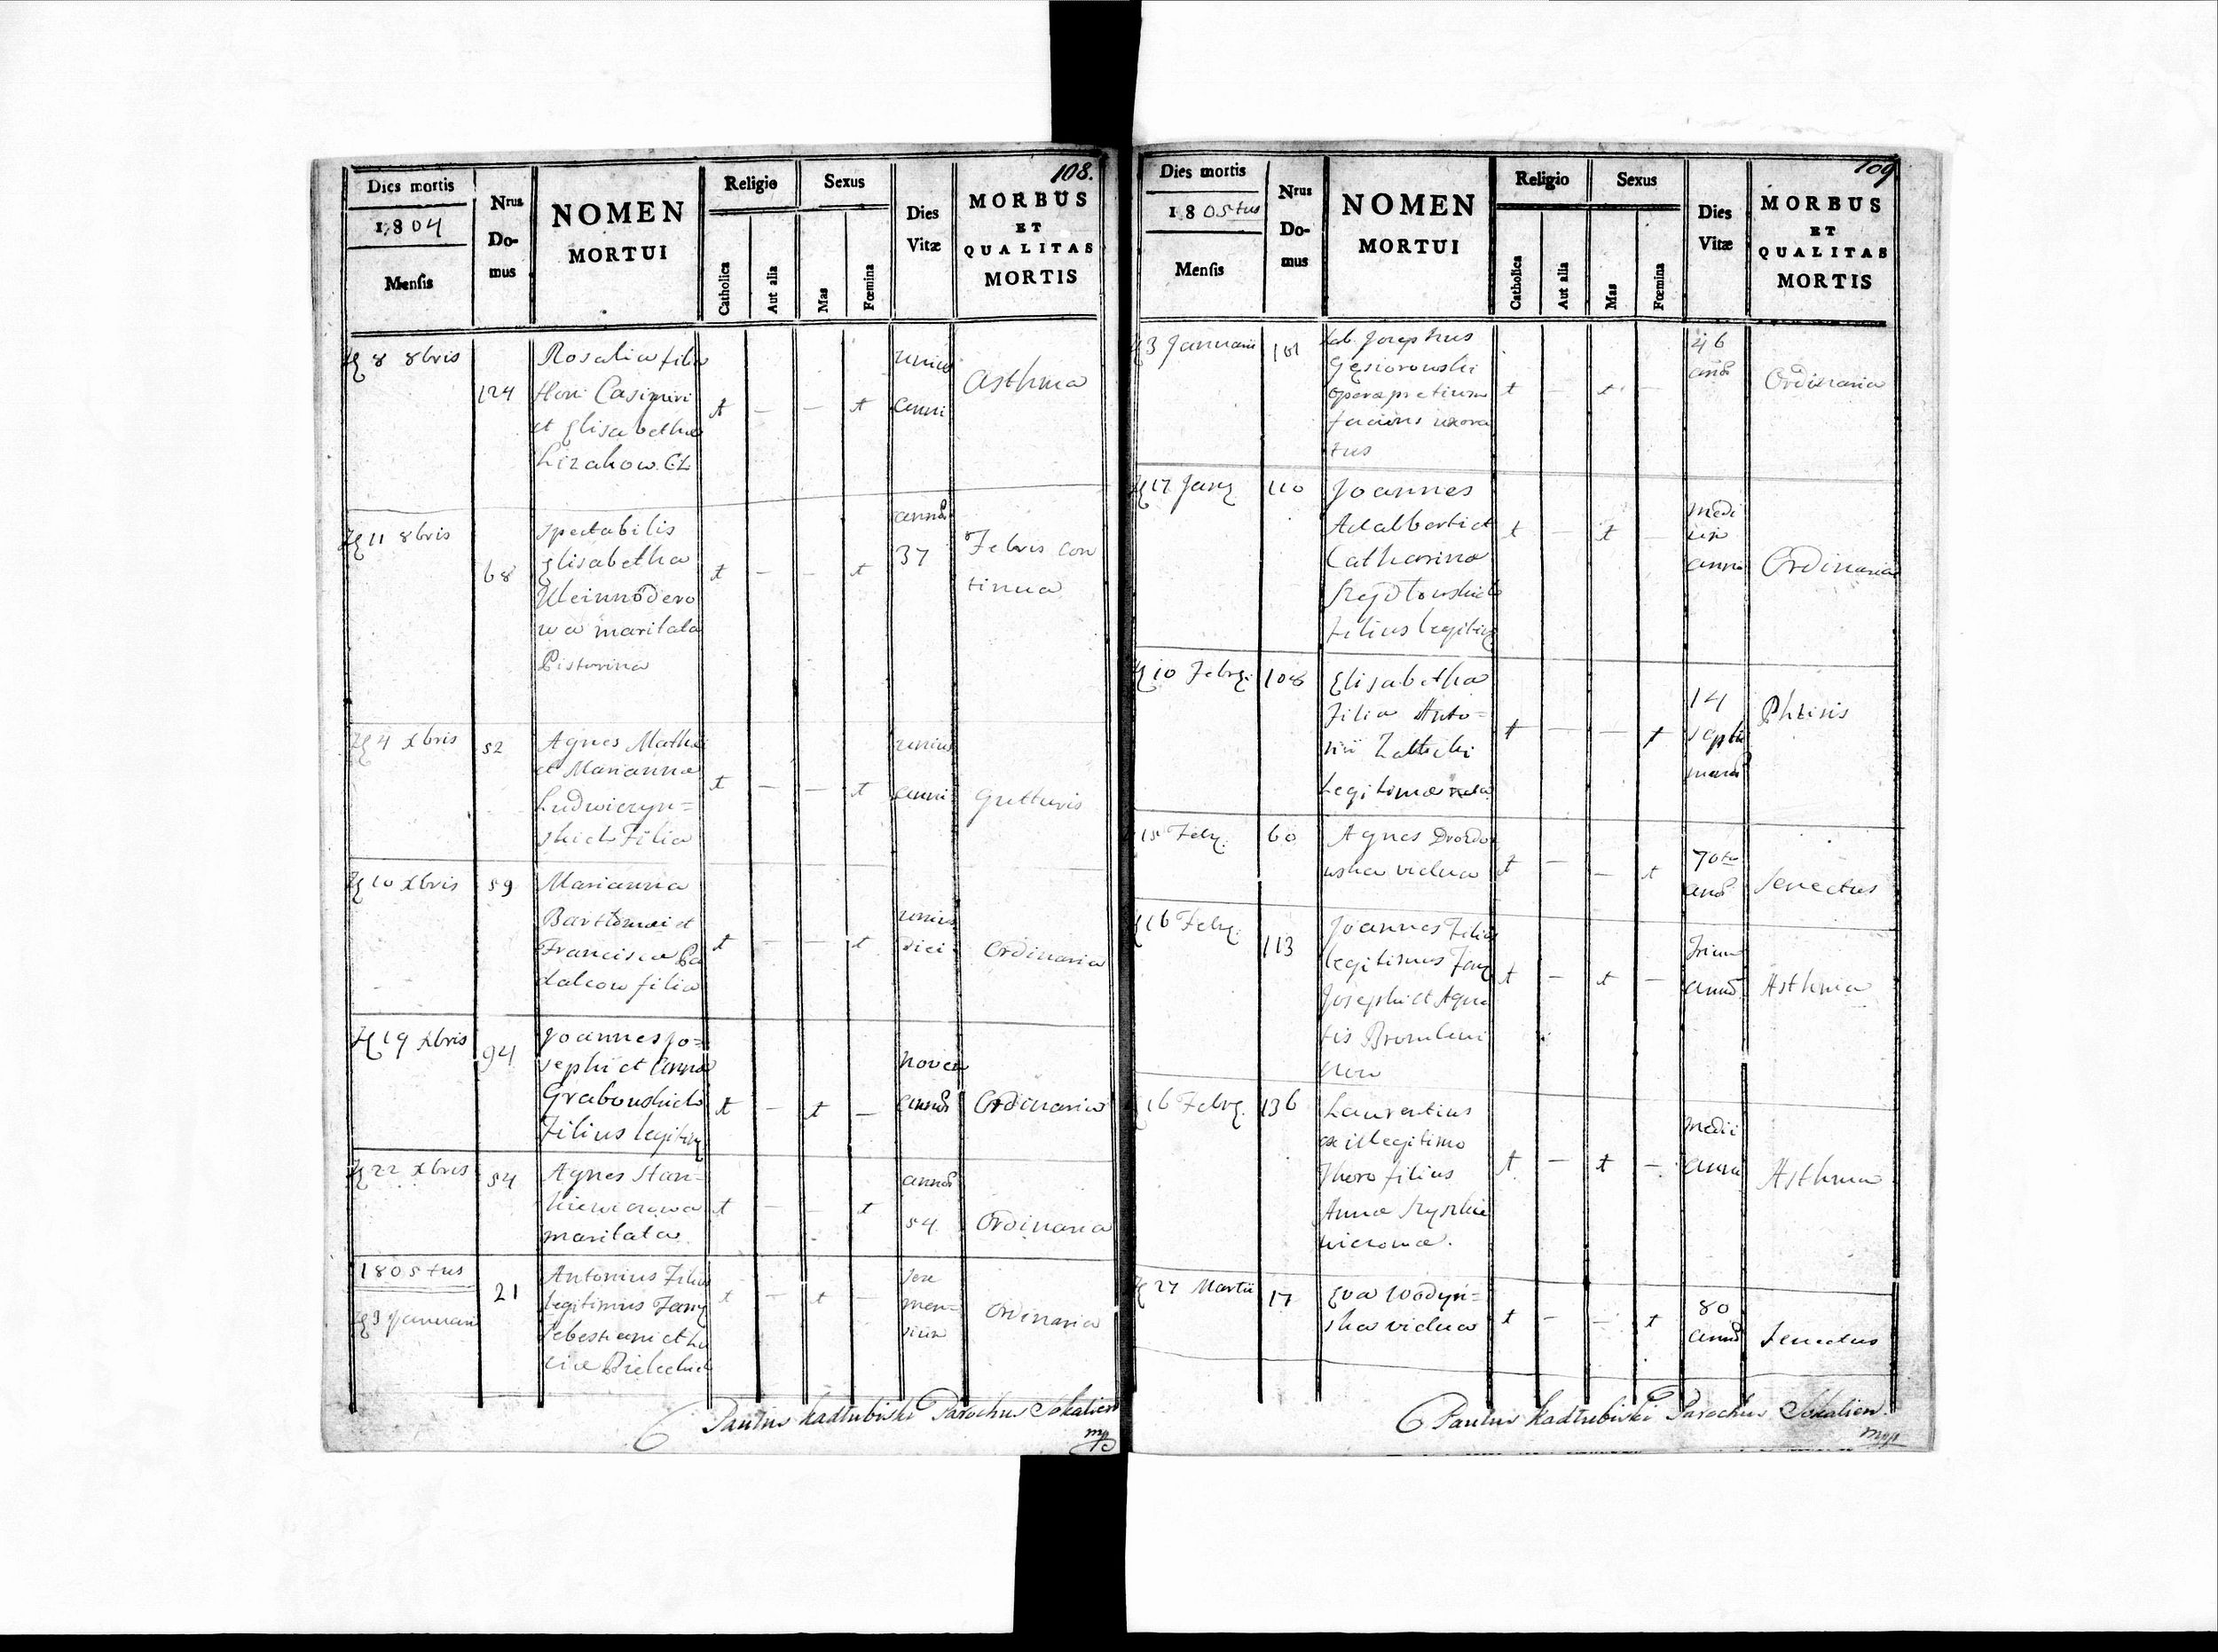 108.
Dies mortis
1804
Mensis
Nrus
Do-
mus
NOMEN
MORTUI
Religio
Catholica
Aut alia
Sexus
Mas
Fœmina
Dies
Vitæ
MORBUS
ET
QUALITAS
MORTIS
8 8bris
124
Rosalia filia
Hon: Casimiri
et Elisabetha
t – – t
unius
anni
Asthma
11 8bris
68
Spectabilis
Elisabetha
wa maritata
Pistorina
t – – t
annor
37
Febris con
tinua
4 Xbris
52
Agnes Mathei
et Marianna
Ludwiczyn=
skich Filia
t – – t
unius
anni
gutturis
10 Xbris
59
Marianna
Barthomei et
Francisca Pa
dalcow filia
t – – t
unius
diei
Ordinaria
19 Xbris
94
Joannes Jo=
sephi et Anna
Grabowskich
Filius legitimg
t – t –
novem
annor
Ordinaria
22 Xbris
54
Agnes Stan=
kiewiczowa
maritata
t – – t
annor
54
Ordinaria
1805tus
9 Januarii
21
Antonius Filius
legitimus
Sebestiani et Lu
cia
t – t –
Sex
men=
sium
Ordinaria
Paulus Kadłubiski Parochus Sokalien
mp
109
Dies mortis
1805tus
Mensis
Nrus
Do-
mus
NOMEN
MORTUI
Religio
Catholica
Aut alia
Sexus
Mas
Fœmina
Dies
Vitæ
MORBUS
ET
QUALITAS
MORTIS
13 Januarii
101
Lab. Josephus
Gęsiorowski
operæpretium
faciens uxora
tus
t – t –
46
annor
Ordinaria
17 Jang
110
Joannes
Adalberti et
Catharina
Filius legitimg
t – t –
medi
um
anni
Ordinaria
10 Febrg.
108
Elisabetha
Filia Anto=
nii
Legitima nata
t – – t
14
septi
manar
Phtisis
15 Febrg.
60
Agnes Drozdo
wska vidua
t – – t
70ta
annor
Senectus
16 Febrg.
113
Joannes Filius
legitimus
Josephi et Agne
tis
t – t –
Trium
annor
Asthma
16 Febrg.
136
Laurentius
ex illegitimo
thoro filius
Anna Szyszkie
wiczowna.
t – t –
medii
anni
Asthma
27 Martii
17
Eva Wodyń=
ska vidua
t – – t
80
annor
Senectus
Paulus Kadłubiski Parochus Sokalien.
mpp